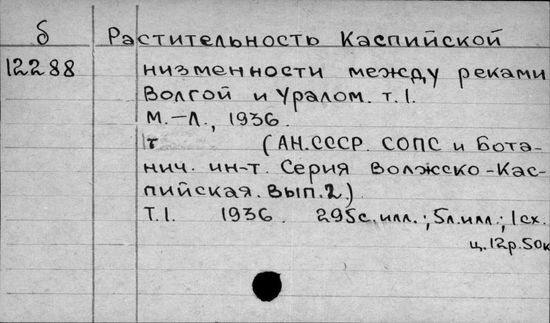 б Растительность Каспийской
12288 низменности между реками
Волгой и Уралом. т.1.
М.-Л., 1936.
т (АН.СССР. СОПС и Бота-
нич. ин-т. Серия Волжско-Кас-
пийская. Вып.2.)
Т.1. 1936. 295с.илл.; 5л.илл.; 1сх.
ц.12р.50к